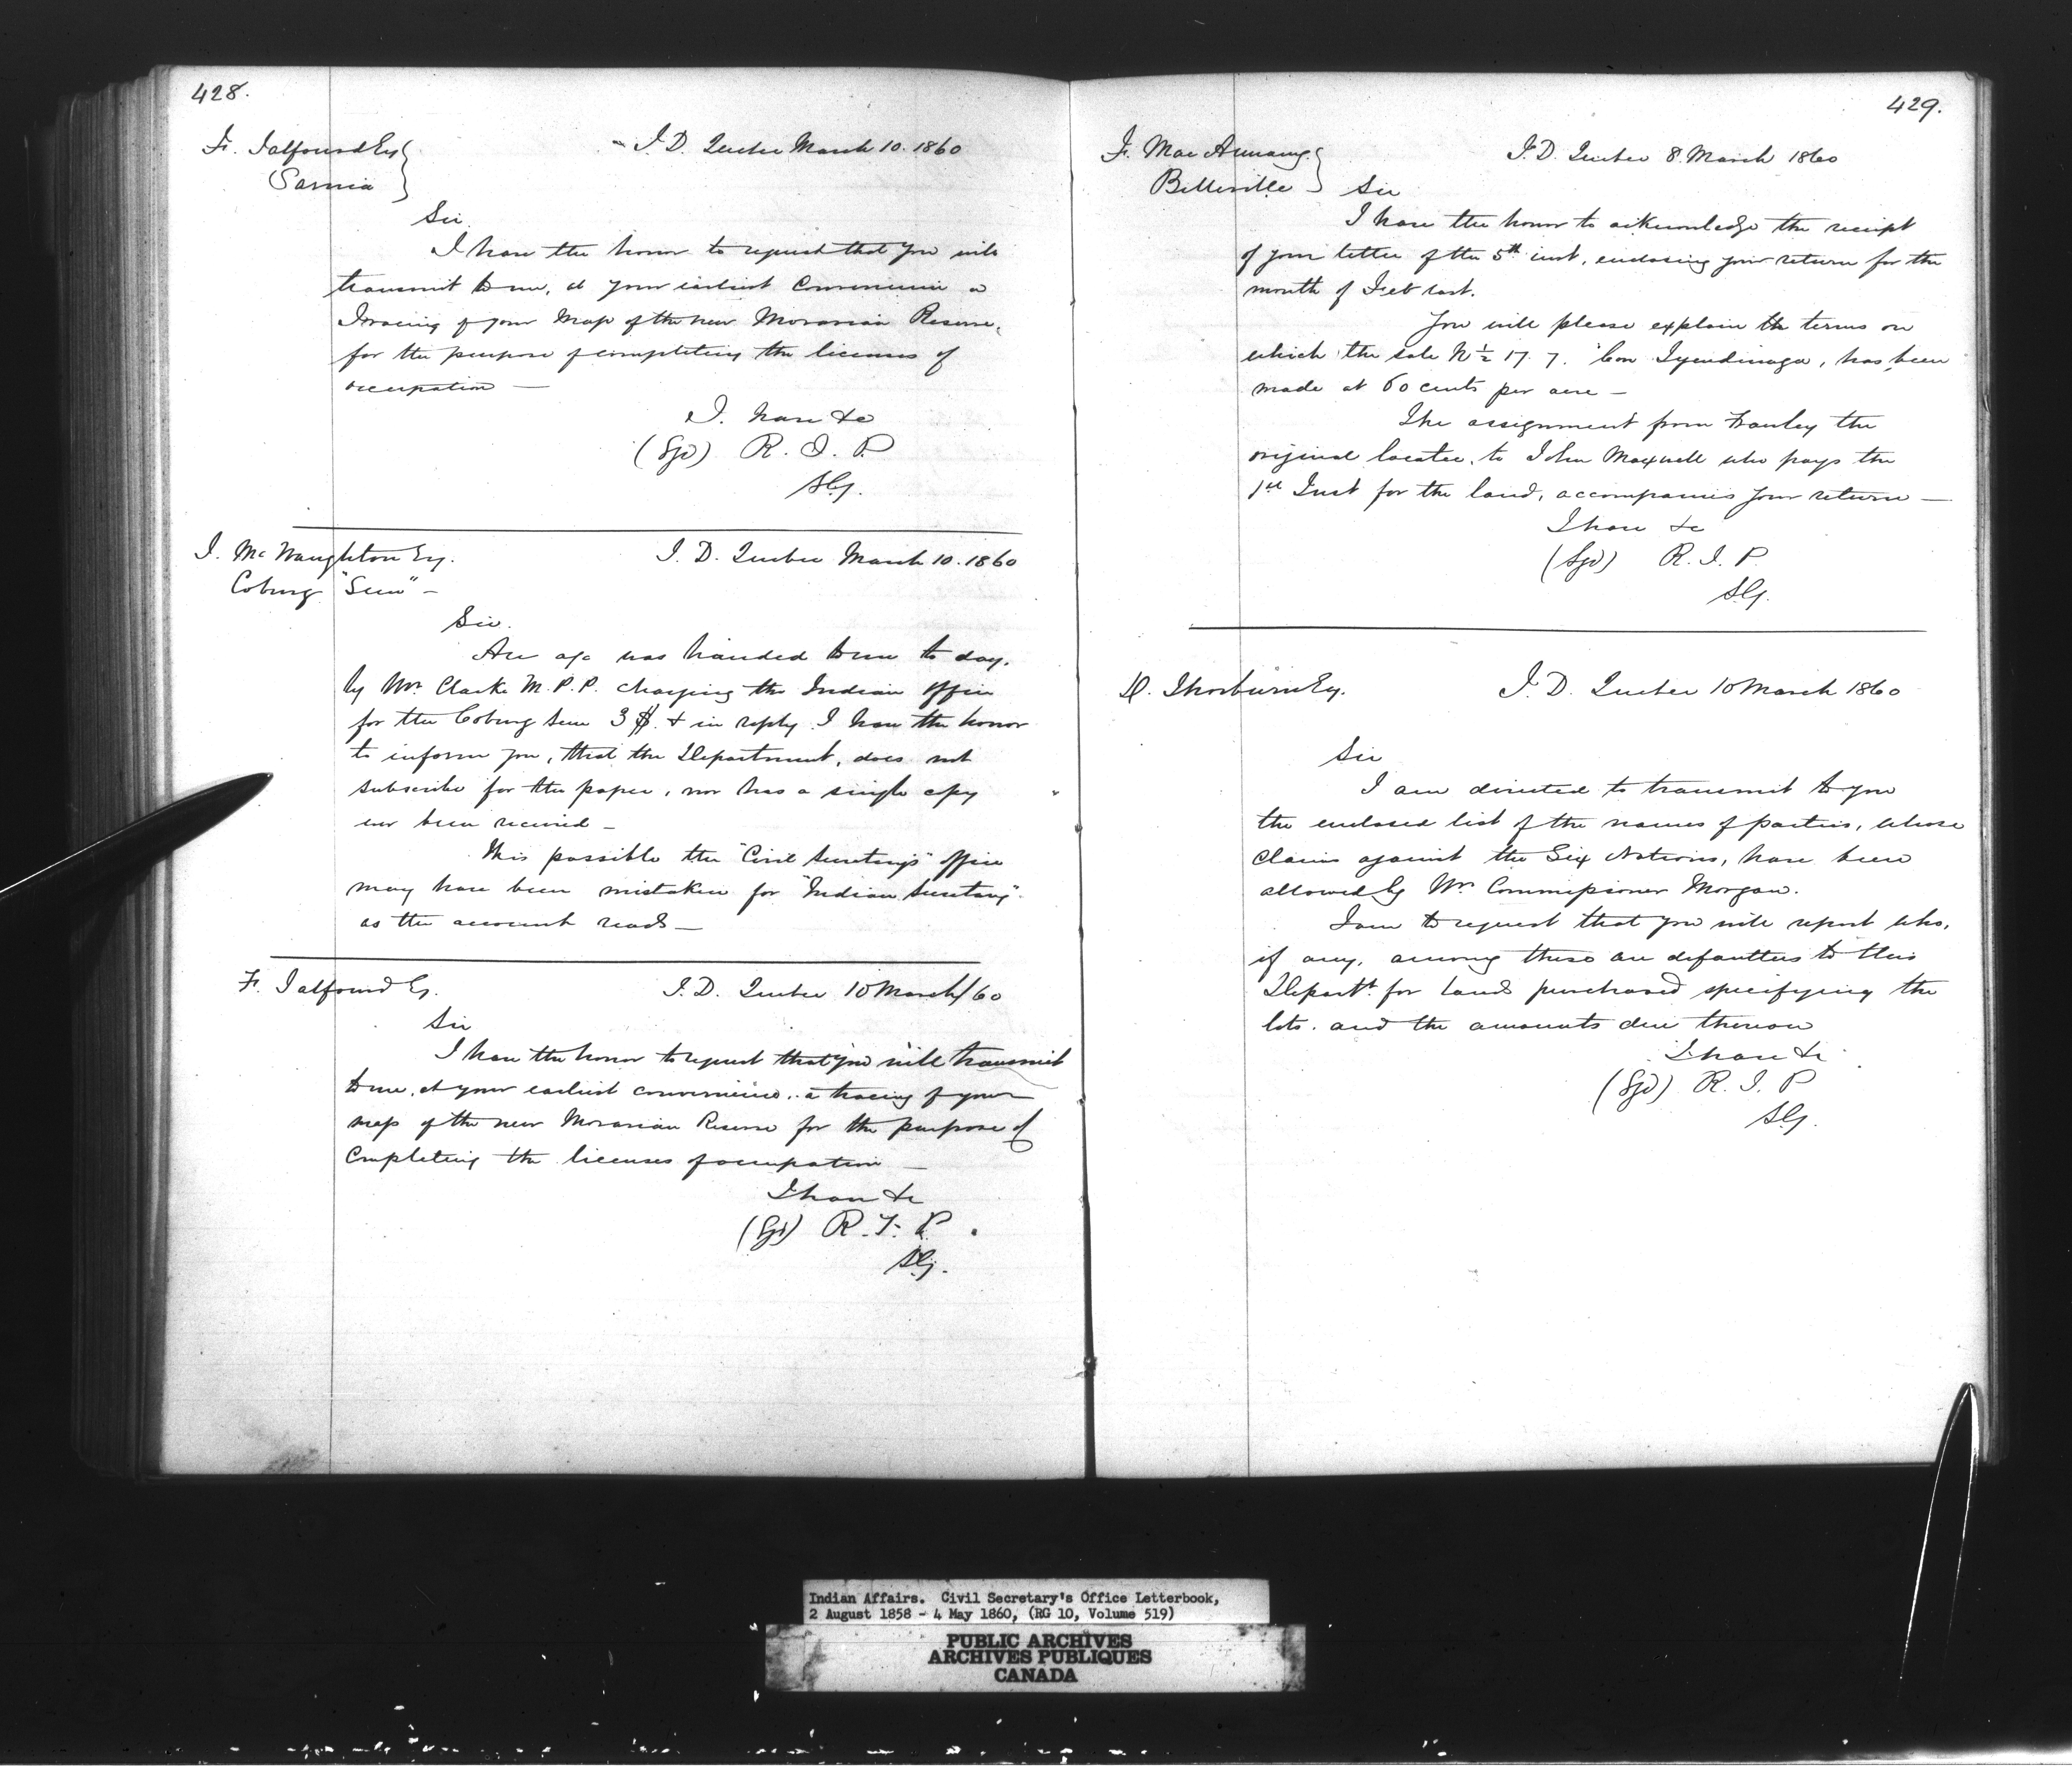 428.
Fr. Talfourd Esq
Sarnia
I. D. Quebec March 10. 1860
Sir
I have the honor to request that you will
transmit to me, at your earliest convenience a
Tracing of your Map of the new Moravian Reserve,
for the purpose of completing the licenses of
occupation —
I. have &c
(Sgd) R. T. P.
SG.
J. McNaughton Esq.
Coburg "Sun" —
I. D. Quebec March 10. 1860
Sir.
An a/c was handed to me to day.
by Mr Clarke M.P.P. charging the Indian Office
for the Coburg Sun 3 $. & in reply I have the honor
to inform you, that the Department, does not
subscribe for the paper, nor has a single copy
ever been received —
This possible the "Civil Secretary's" Office
may have been mistaken for "Indian Secretary".
as the account reads —
Fr. Talfourd Esq.
I. D. Quebec 10 March/60
Sir
I have the honor to request that you will transmit
to me, at your earliest convenience, a tracing of your
map of the new Moravian Reserve for the purpose of
Completing the licenses of occupation —
I have &c
(Sgd) R. T. P.
SG.
429.
Fr. MacAnnany.
Belleville
I. D. Quebec 8 March 1860
Sir
I have the honor to acknowledge the receipt
of your letter of the 5th inst, enclosing your return for the
month of Feb last.
You will please explain the terms on
which the sale N ½ 17. 7. Con Tyendinaga, has been
made at 60 cents per acre —
The assignment from the
original locatee, to John Maxwell who pays the
1st Inst for the land, accompanies your return —
I have &c
(Sgd) R. T. P.
SG.
D. Thorburn Esq.
I. D. Quebec 10 March 1860
Sir
I am directed to transmit to you
the enclosed list of the names of parties, whose
claims against the Six Nations, have been
allowed by Mr Commissioner Morgan.
I am to request that you will report who,
if any, among these are defaulters to this
Departt. for lands purchased specifying the
lots. and the amounts due thereon
I have &c
(Sgd) R. T. P
SG.
Indian Affairs. Civil Secretary's Office Letterbook,
2 August 1858 - 4 May 1860, (RG 10, Volume 519)
PUBLIC ARCHIVES
ARCHIVES PUBLIQUES
CANADA